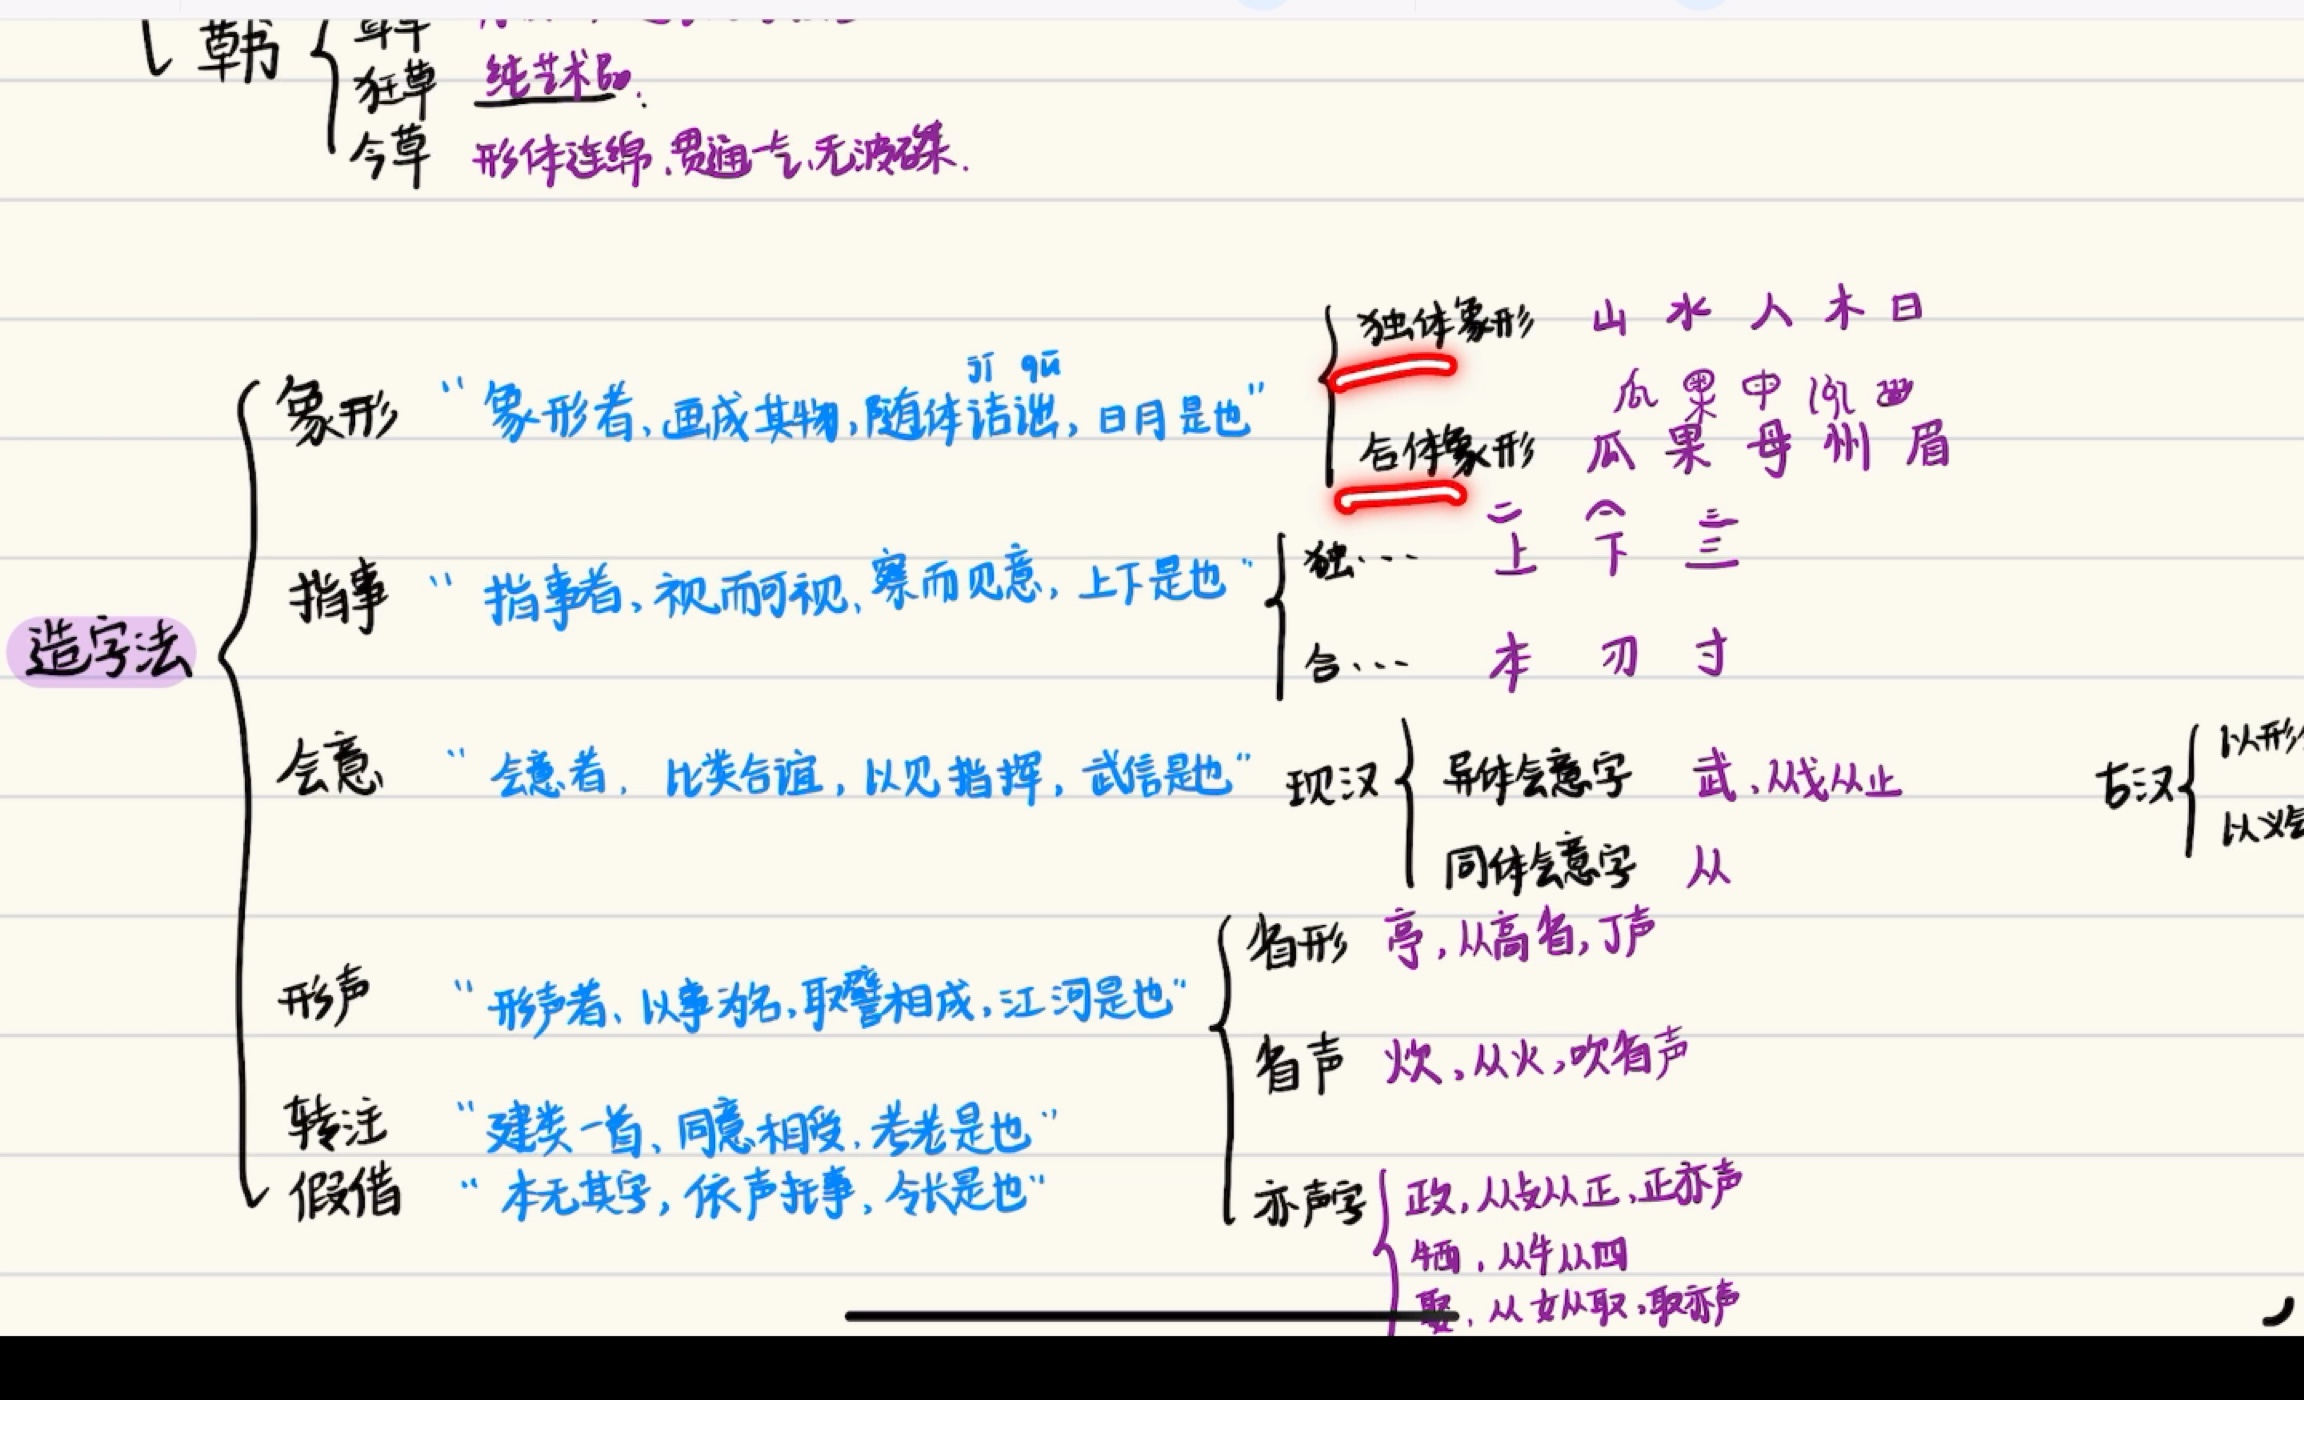 草书
狂草 纯艺术品.
今草 形体连绵、贯通一气、无波磔.
独体象形 山 水 人 木 日
jí qū
象形 “象形者、画成其物,随体诘诎,日月是也”
合体象形 瓜 果 母 州 眉
二 三
独… 上 下 三
指事 “指事者、视而可视、察而见意,上下是也”
合… 本 刃 寸
造字法
会意 “会意者, 比类合谊,以见指㧑,武信是也” 现汉 异体会意字 武、从戈从止
古汉
同体会意字 从
省形 亭,从高省,丁声
形声 “形声者、以事为名,取譬相成,江河是也”
省声 炊、从火,吹省声
转注 “建类一首、同意相受、考老是也”
假借 “本无其字,依声托事、令长是也”
亦声字 政,从攴从正、正亦声
牭、从牛从四
娶、从女从取、取亦声